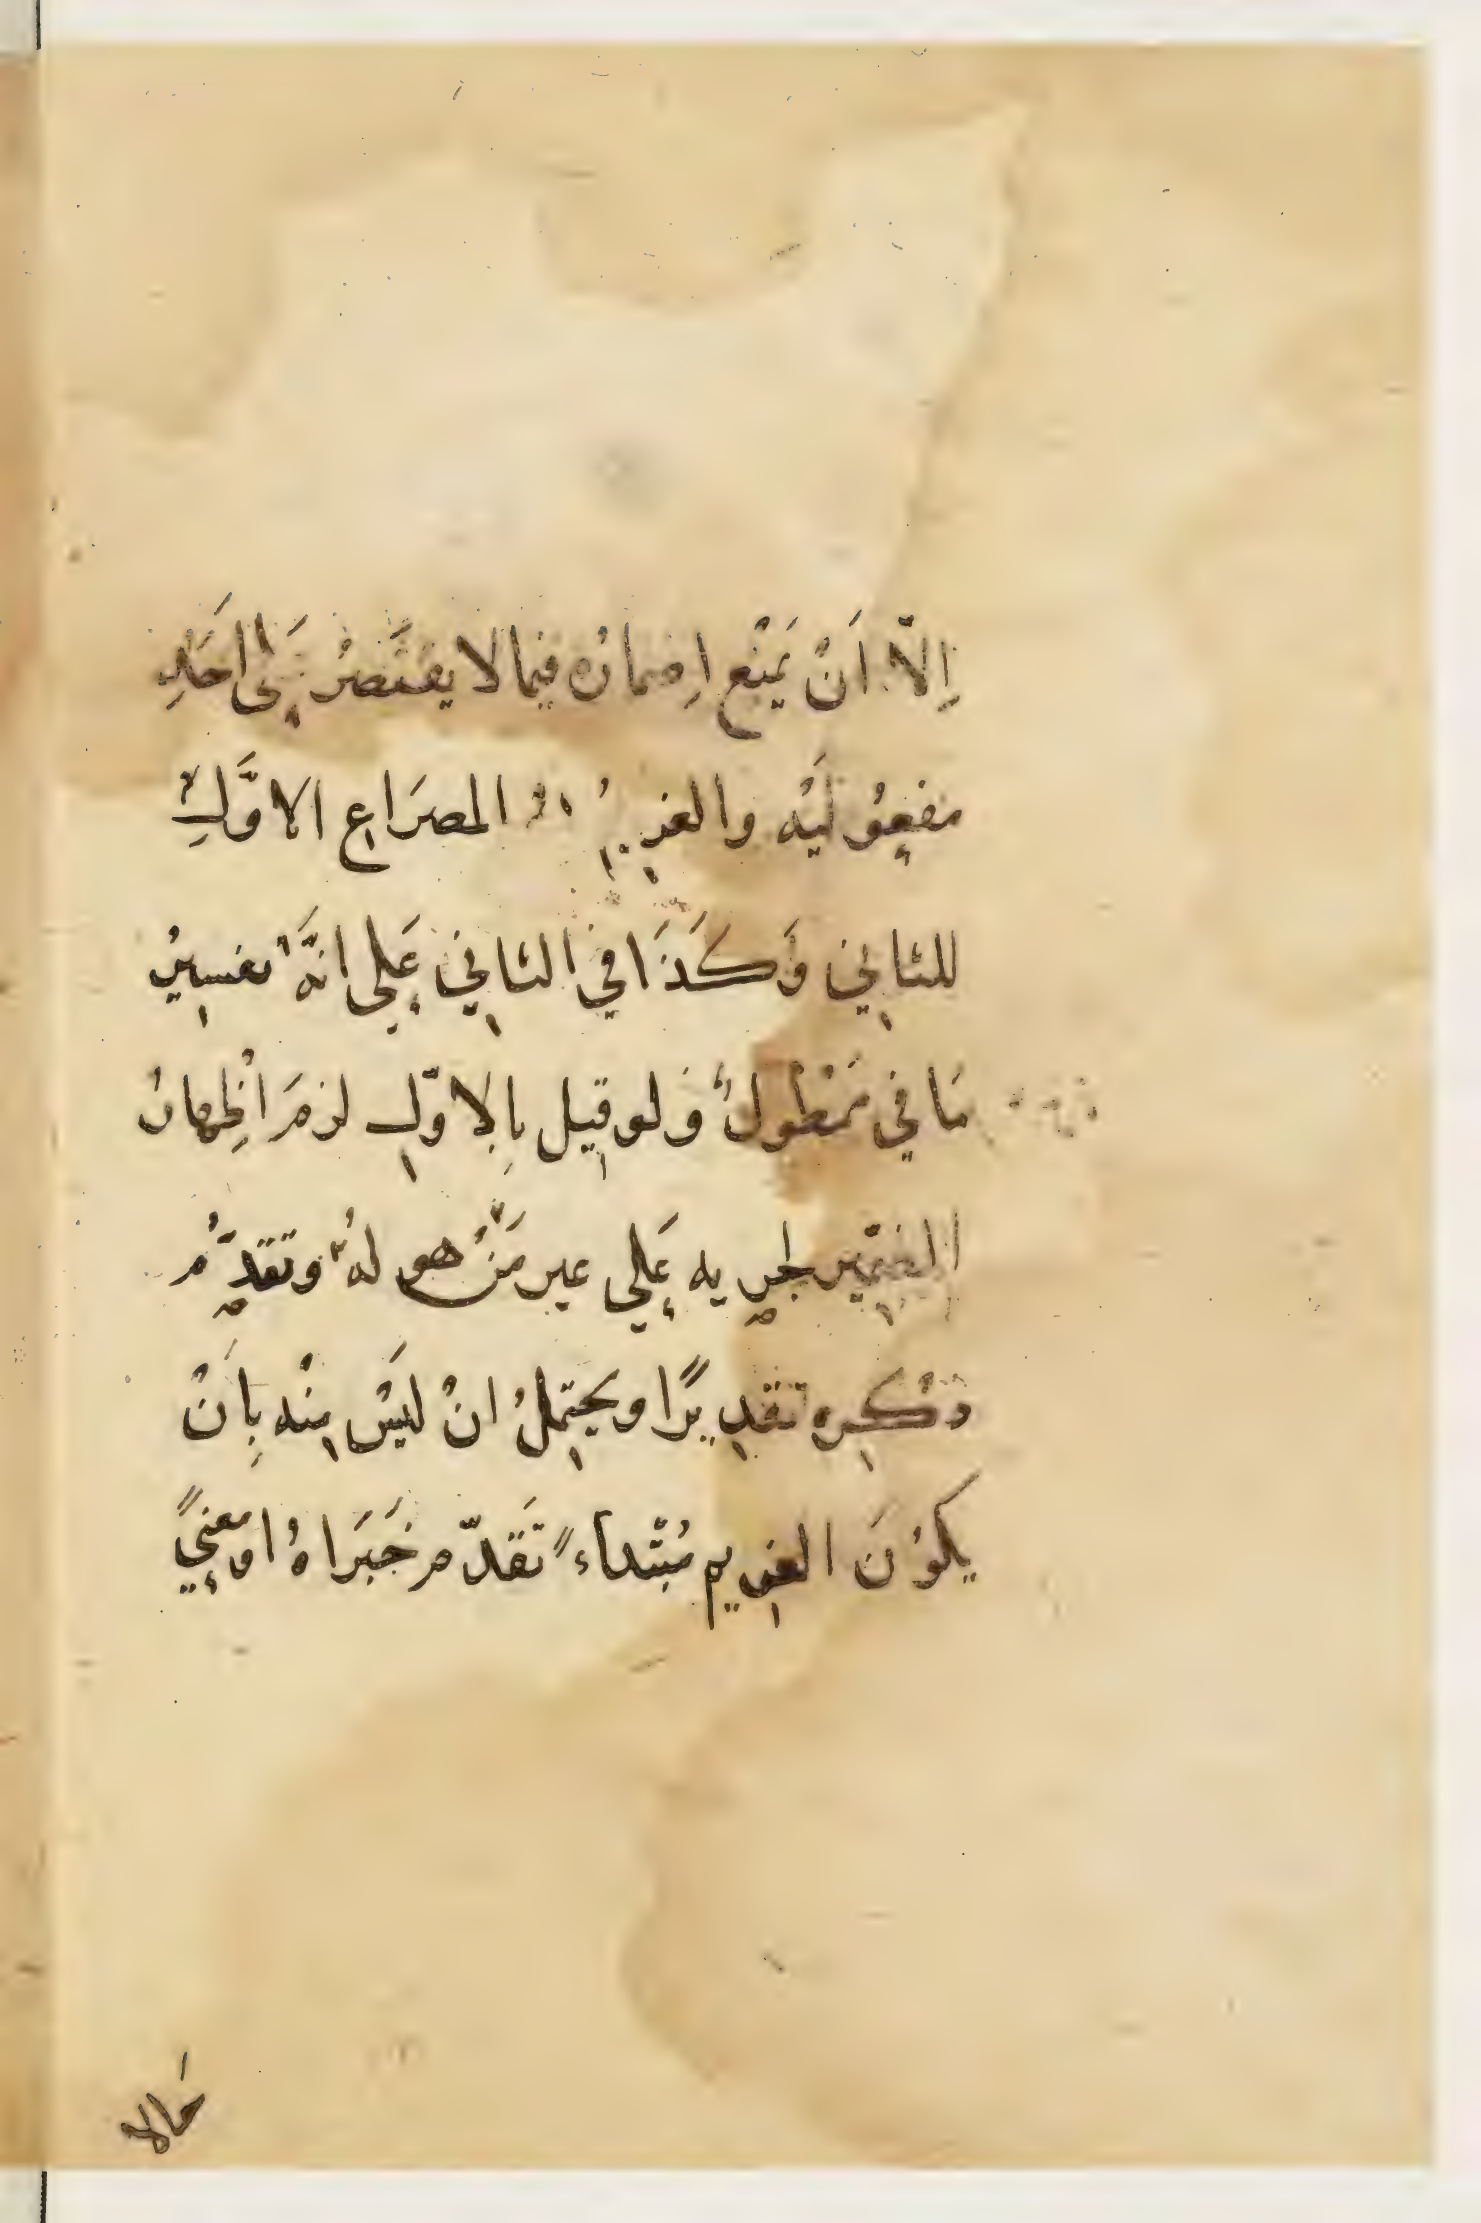 اِلّا اَنْ يَمْنَع اِضماره فيما لا يقتَصرُ عَلى اَحَدِ
مفعُولَيْه والغريم المصرَاع الاوَّلِ
للثاني وَكَذَا في الثاني عَلي انَّهُ تفسيرُ
مَا في مَمْطول وَلو قيل بِالاوّلِ لزمَ اظِهارُ
الضمير لجريه عَلي غير مَنْ هو لهُ وتقدّمُ
ذكره تقديرًا ويحتملُ انْ لَيسَ مِنْه بِاَنْ
يكوُنَ الغريم مُبْتداءً تَقدّم خَبَراهُ او مَعنيً
حَالا